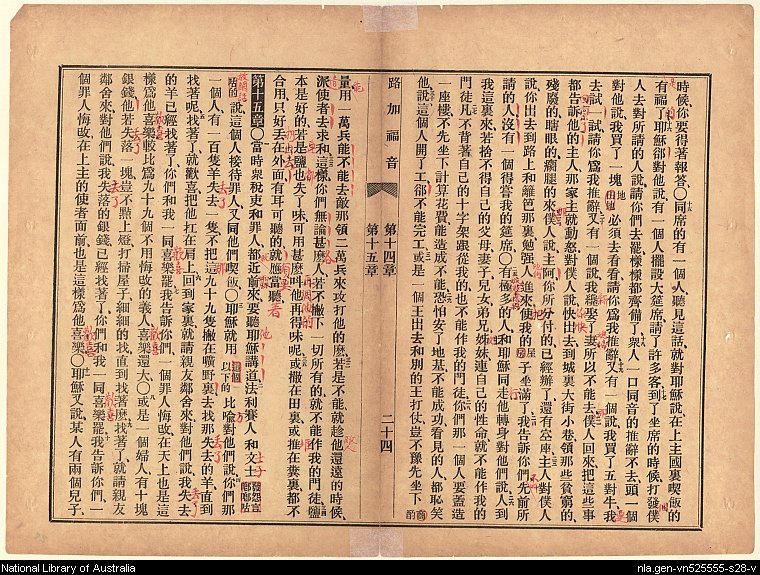 時候、你要得著報答○同席的有一個人聽見這話、就對耶穌說、在上主國裏喫飯的
有福了、耶穌卻對他說、有一個人擺設大筵席、請了許多客、到了坐席的時候、打發僕
人去對所請的人說、請你們去罷、樣樣都齊備了、衆人一口同音的推辭不去、頭一個
對他說、我買了一塊田地、必須去看看、請你爲我推辭、又有一個說、我買了五對牛、我
去試一試、請你爲我推辭、又有一個說、我纔娶了妻、所以不能去、僕人回來、把這些事
都告訴他的主人、那家主就動怒、對僕人說、快出去到城裏大街小巷、領那些貧窮的、
殘廢的、瞎眼的、瘸腿的來、僕人說、主阿、你所分付的、已經辦了、還有空座、主人對僕人
說、你出去到路上和籬笆那裏、勉強人進來、使我的屋子坐滿了、我告訴你們、先前所
請的人、沒有一個得嘗我的筵席○有極多的人和耶穌同走、他轉身對他們說、人到
我這裏來、若捨不得自己的父母妻子兒女弟兄姊妹、連自己的性命、就不能作我的
門徒、凡不背著自己的十字架跟從我的、也不能作我的門徒、你們那一個人要蓋造
一座樓、不先坐下計算花費、能造成不能、恐怕安了地基、不能成功、看見的人都恥笑
他、說、這個人開了工、卻不能完工、或是一個王出去和別的王打仗、豈不豫先坐下
路加福音 第十四章 第十五章 二十四
量、用一萬兵、能不能去敵那領二萬兵來攻打他的麽、若是不能、就趁他還遠的時候、
派使者去求和、這樣、你們無論甚麽人、若不撇下一切所有的、就不能作我的門徒、鹽
本是好的、若是鹽也失了味、可用甚麽叫他再得味呢、或撒在田裏、或推在糞裏、都不
合用、只好丟在外面、有耳可聽的就應當聽、
第十五章○當時衆稅吏和罪人、都近前來要聽耶穌講道、法利賽人和文士
說、這個人接待罪人、又同他們喫飯○耶穌就用以下的比喻對他們說、你們那
一個人、有一百隻羊、失去一隻、不把這九十九隻撇在曠野裏、去找那失去的羊、直到
找著呢、找著了、就歡喜把他扛在肩上、回到家裏、就請親友鄰舍來對他們說、我失去
的羊已經找著了、你們和我一同喜樂罷、我告訴你們、一個罪人悔改、在天上也是這
樣爲他喜樂、較比爲九十九個不用悔改的義人、喜樂還大○或是一個婦人、有十塊
銀錢、他若失落一塊、豈不點上燈、打掃屋子、細細的找、直到找著麽、找著了、就請親友
鄰舍來對他們說、我失落的銀錢、已經找著了、你們和我一同喜樂罷、我告訴你們、一
個罪人悔改、在上主的使者面前、也是這樣爲他喜樂○耶穌又說、某人有兩個兒子、
National Library of Australia
nla.gen-vn525555-s28-v